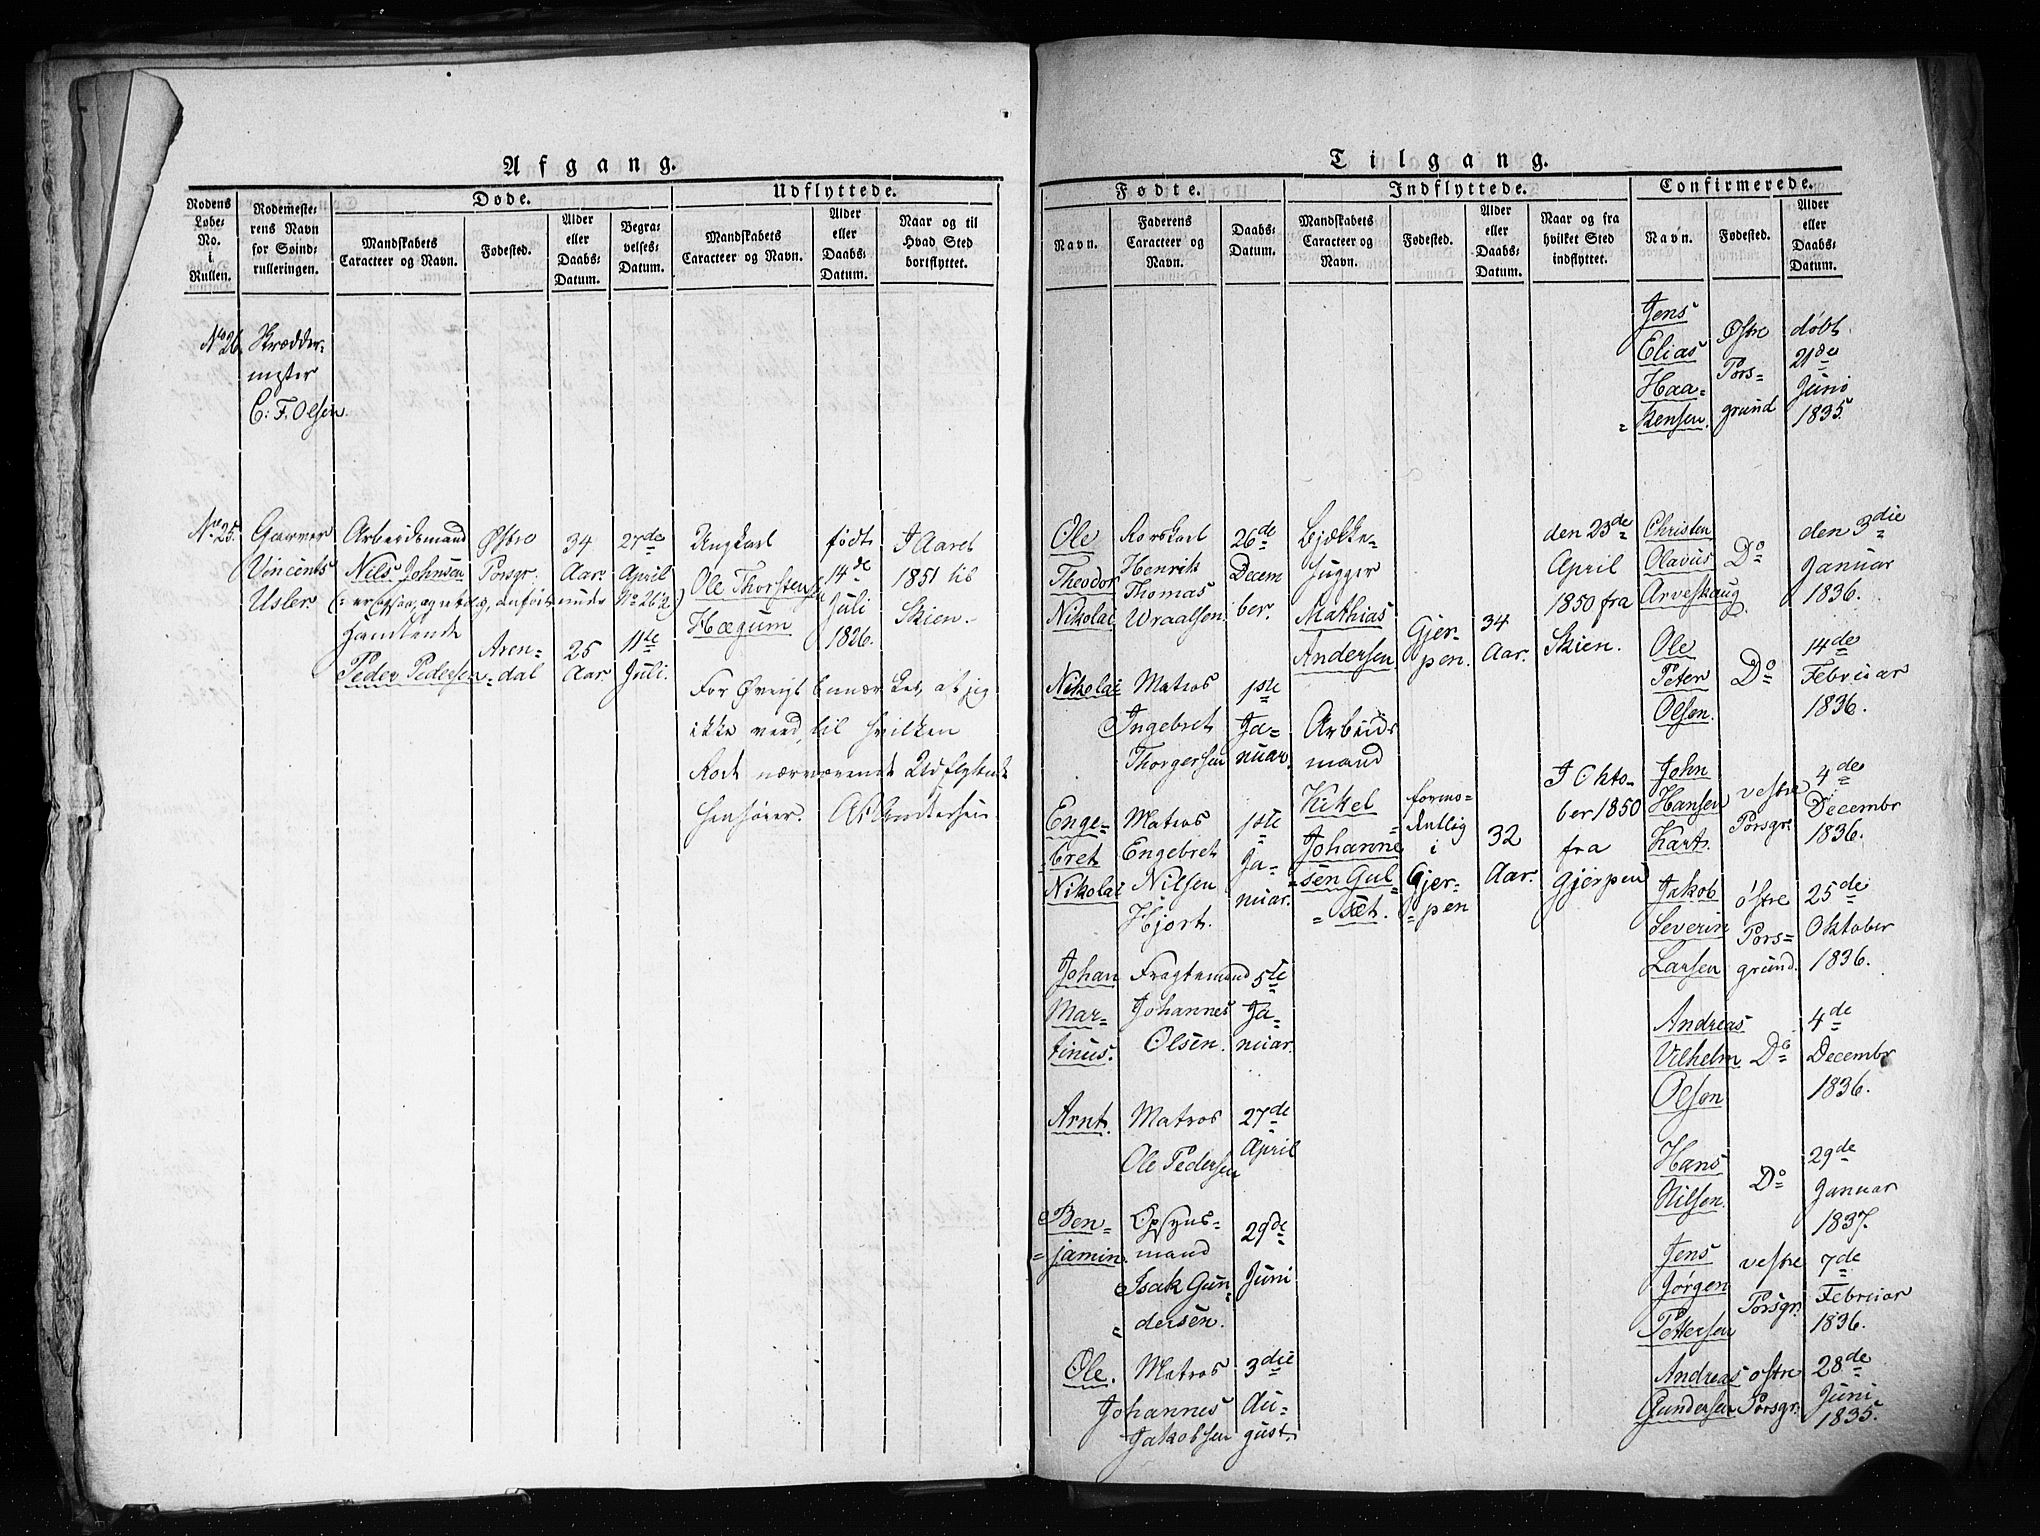 Afgang.
Rodens
Løbe-
No.
i
Rullen.
Rodemeste-
rens Navn
for Søind-
rulleringen.
Døde.
Mandskabets
Caracteer og Navn.
Fødested.
Alder
eller
Daabs-
Datum.
Begra-
velses-
Datum.
Udflyttede.
Mandskabets
Caracteer og Navn.
Alder
eller
Daabs-
Datum.
Naar og til
Hvad Sted
bortflyttet.
No 26.
Skrædder-
mester
C: F. Olsen
No 25.
Garver
Vincents
Usler.
Arbeidsmand
Nils Johnsen
Østre
Porsgr:
34
Aar.
27de
April
No 262)
hjemtende
Peder Pedersen
Aren-
dal
25
Aar
11te
Juli.
Ungkarl
Ole Thorstensen
Hægum
født
14de
Juli
1826.
I Aaret
1851 til
Skien.
For Øvrigt bemærkes, at jeg
ikke veed, til hvilken
Rode nærværende Udflyttede
henhører.
Tilgang.
Fødte.
Navn.
Faderens
Caracteer og
Navn.
Daabs-
Datum.
Indflyttede.
Mandskabets
Caracteer og
Navn.
Fødested.
Alder
eller
Daabs-
Datum.
Naar og fra
hvilket Sted
indflyttet.
Confirmerede.
Navn.
Fødested.
Alder
eller
Daabs-
Datum.
Jens
Elias
Haa-
kensen
Østre
Pors-
grund
døbt
21de
Juni
1835.
Ole
Theodor
Nikolai
Rorskarl
Henrik
Thomas
Wraalsen
26de
Decem
ber.
Bjælke-
hugger
Mathias
Andersen
Gjer-
pen.
34
Aar.
den 23de
April
1850 fra
Skien.
Christen
Olavus
Arveskaug
Do
den 3die
Januar
1836.
Ole
Peter
Olsen.
Do
14de
Februar
1836.
Nikolai
Matros
Ingebret
Thorgersen
1ste
Ja-
nuar.
Arbeids
mand
Kikel
Johanne
sen Gul-
set.
formo-
dentlig
i
Gjer-
pen
32
Aar.
I Okto-
ber 1850
fra
Gjerpen
John
Hansen
Kart.
vestre
Porsgr.
4de
Decembr
1836.
Enge-
bret
Nikolai
Matros
Engebret
Nilsen
Hjort.
1ste
Ja-
nuar.
Jakob
Severin
Larsen
østre
Pors-
grund.
25de
Oktober
1836.
Johan
Mar-
tinus.
Fragtemand
Johannes
Olsen.
5te
Ja-
nuar.
Andreas
Vilhelm
Olsen
Do
4de
Decembr
1836.
Arnt.
Matros
Ole Pedersen
27de
April
Hans
Nilsen.
Do
29de
Januar
1837.
Ben-
jamin.
Opsyns-
mand
Isak Gun
dersen.
29de
Juni
Jens
Jørgen
Pettersen
vestre
Porsgr.
7de
Februar
1836.
Ole.
Matros
Johannes
Jakobsen
3die
Au-
gust.
Andreas
Gundersen
østre
Porsgr.
28de
Juni
1835.